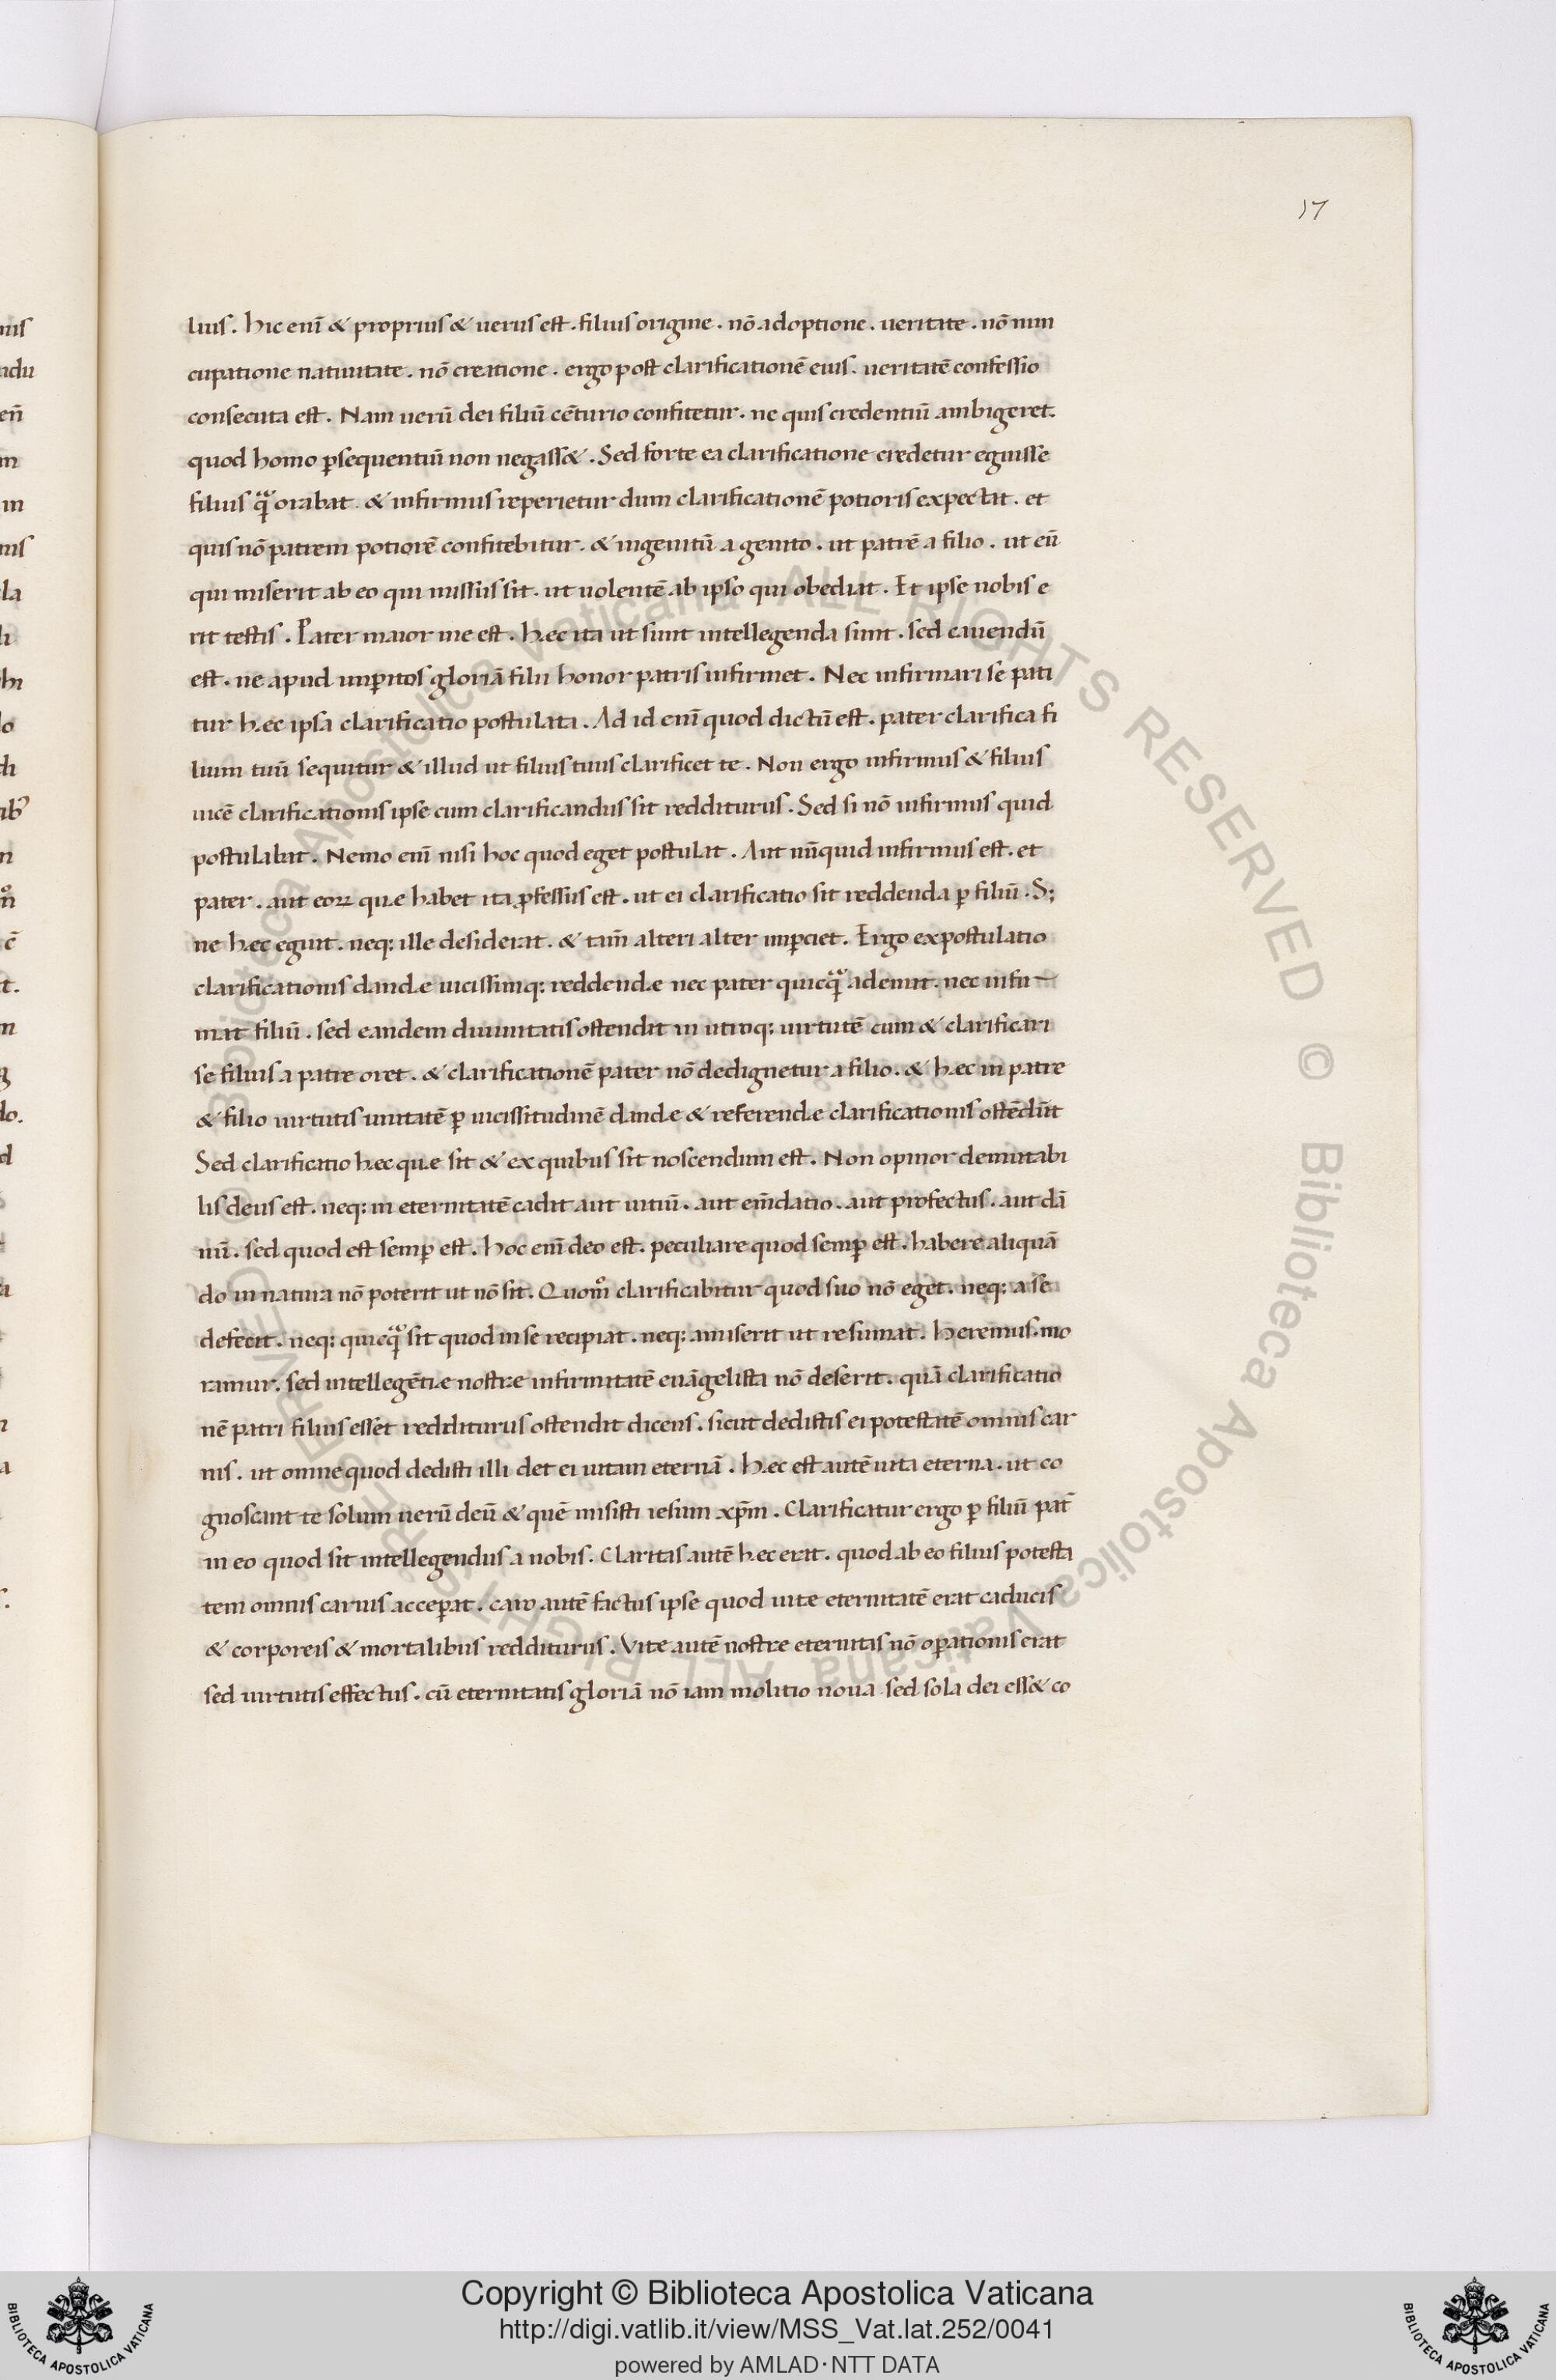 17
lius. hic enī & proprius & uerus est. filius origine. nō adoptione. ueritate. nō nun
cupatione natiuitate. nō creatione. ergo post clarificationē eius. ueritatē confessio
consecuta est. Nam uerū dei filiū cēturio confitetur. ne quis credentiū ambigeret.
quod homo p̱sequentiū non negass&. Sed forte ea clarificatione credetur eguisse
filius qͣ orabat. & infirmus reperietur dum clarificationē potioris expectat. et
quis nō patrem potiorē confitebitur. & ingenitū a genito. ut patrē a filio. ut eū
qui miserit ab eo qui missus sit. ut uolentē ab ipso qui obediat. Et ipse nobis e
rit testis. Pater maior me est. hęc ita ut sunt intellegenda sunt. sed cauendū
est. ne apud imp̱itos gloriā filii honor patris infirmet. Nec infirmari se pati
tur hęc ipsa clarificatio postulata. Ad id enī quod dictū est. pater clarifica fi
lium tuū sequitur & illud ut filius tuus clarificet te. Non ergo infirmus & filius
uicē clarificationis ipse cum clarificandus sit redditurus. Sed si nō infirmus quid
postulabat. Nemo enī nisi hoc quod eget postulat. Aut nūquid infirmus est. et
pater. aut eoꝝ quę habet ita ꝓfessus est. ut ei clarificatio sit reddenda p̱ filiū. S;
ne hęc eguit. neq: ille desiderat. & tam̄ alteri alter imp̱ciet. Ergo expostulatio
clarificationis dandę uicissimq: reddendę nec pater quicqͣ ademit. nec infir
mat filiū. sed eandem diuinitatis ostendit in utroq: uirtutē cum & clarificari
se filius a patre oret. & clarificationē pater nō dedignetur a filio. & hęc in patre
& filio uirtutis unitatē p̱ uicissitudinē dandę & referendę clarificationis ostēdūt
Sed clarificatio hęc quę sit & ex quibus sit noscendum est. Non opinor demutabi
lis deus est. neq: in eternitatē cadit aut uitiū. aut em̄datio. aut profectus. aut dā
nū. sed quod est semp̱ est. hoc enī deo est. peculiare quod semp̱ est. habere aliquā
do in natura nō poterit ut nō sit. Quom̊ clarificabitur quod suo nō eget. neq: a se
defecit. neq: quicqͣ sit quod in se recipiat. neq: amiserit ut resumat. heremus. mo
ramur. sed intellegētię nostrę infirmitatē euāgelista nō deserit. quā clarificatio
nē patri filius esset redditurus ostendit dicens. sicut dedistis ei potestatē omnis car
nis. ut omne quod dedisti illi det ei uitam eternā. hęc est autē uita eterna. ut co
gnoscant te solum uerū deū & quē misisti iesum xp̄m. Clarificatur ergo p̱ filiū pat̄
in eo quod sit intellegendus a nobis. Claritas autē hęc erat. quod ab eo filius potesta
tem omnis carnis accep̱at. caro autē factus ipse quod uitę eternitatē erat caducis
& corporeis & mortalibus redditurus. Vite autē nostrę eternitas nō op̱ationis erat
sed uirtutis effectus. cū eternitatis gloriā nō iam molitio noua sed sola dei ess& co
Copyright © Biblioteca Apostolica Vaticana
http://digi.vatlib.it/view/MSS_Vat.lat.252/0041
powered by AMLAD·NTT DATA
BIBLIOTECA APOSTOLICA VATICANA
BIBLIOTECA APOSTOLICA VATICANA